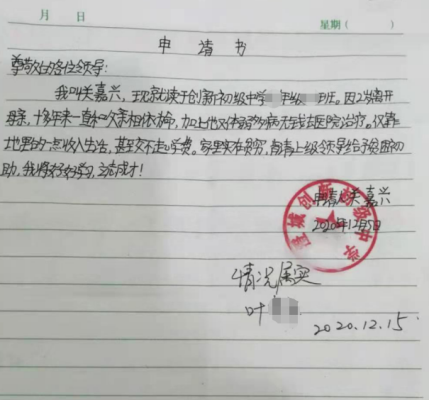 月 日 星期（ ）
申请书
尊敬的各位领导：
我叫关嘉兴，现就读于创新初级中学 年级 班。因2岁离开
母亲，十多年来一直和父亲相依为命，加上他又体弱多病无钱去医院治疗。仅靠
地里的一点收入生活，甚至交不起学费。家里实在贫穷，自请上级领导给予给困补
助，我将好好学习，立志成才！
申请人关嘉兴
2020年12月5日
城创新初级中学
情况属实
叶
2020.12.15